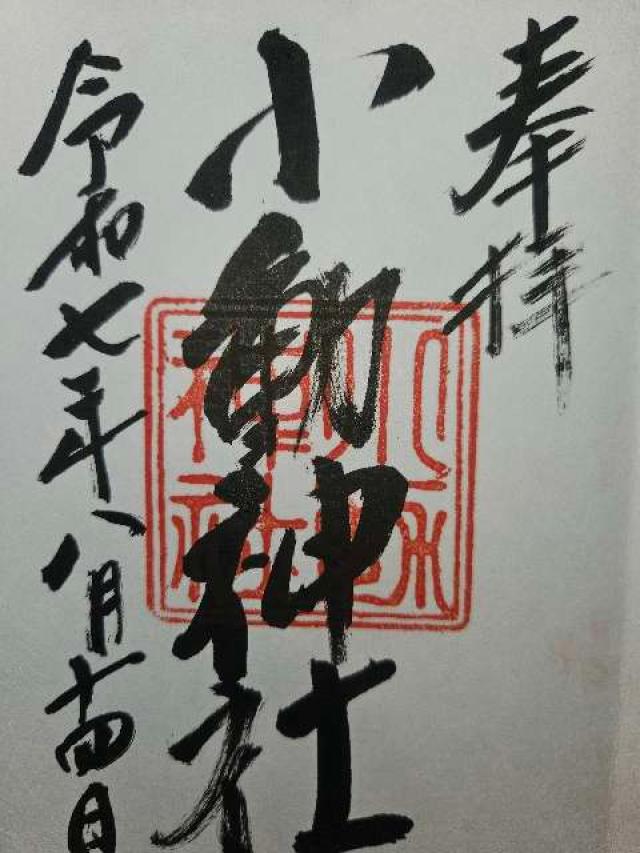 奉拝
小動神社
令和七年八月十四日